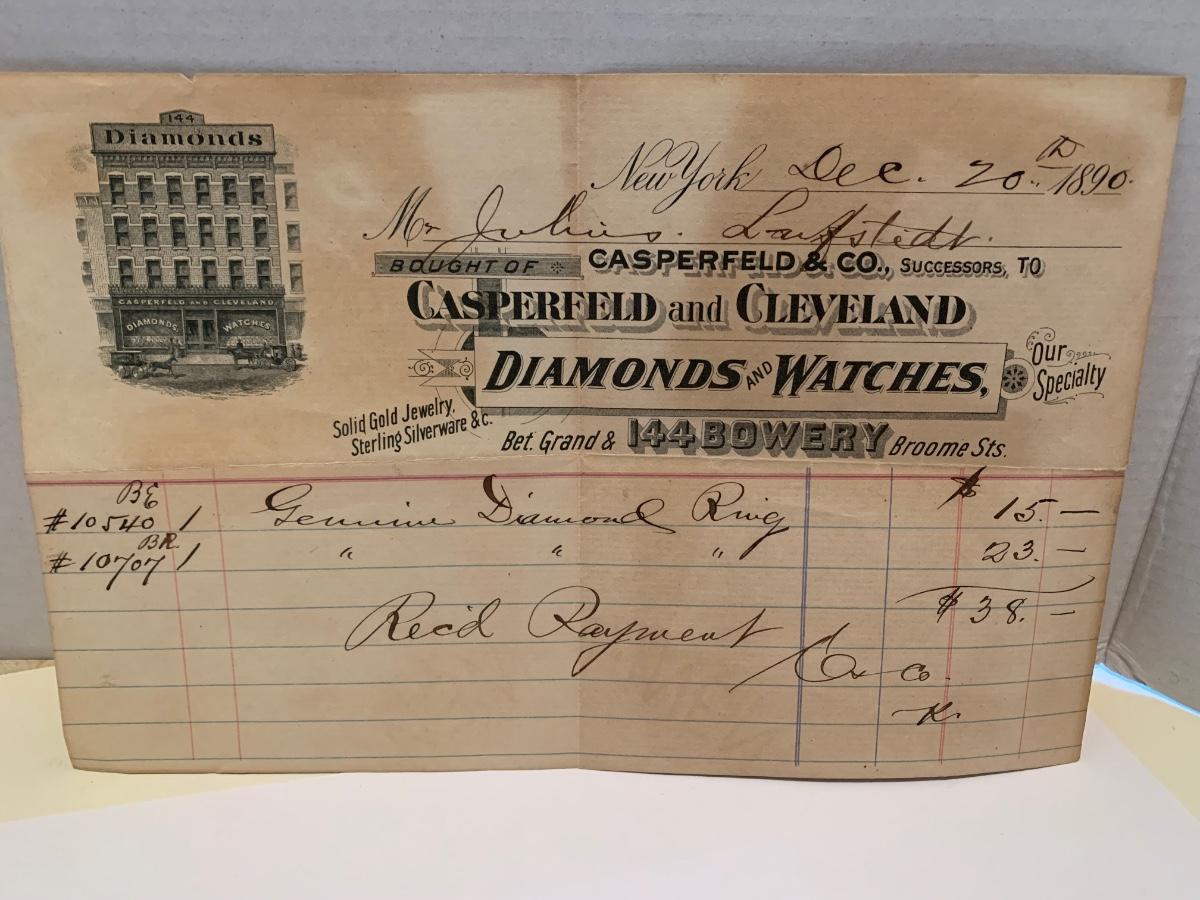 144
Diamonds
CASPERFELD AND CLEVELAND
DIAMONDS, WATCHES,
New York Dec. 20th 1890.
Mr Julius.
BOUGHT OF CASPERFELD & CO., SUCCESSORS, TO
CASPERFELD and CLEVELAND
DIAMONDS AND WATCHES,
Our Specialty
Solid Gold Jewelry,
Sterling Silverware &c.
Bet. Grand & 144 BOWERY Broome Sts.
BE
#10540 1 Genuine Diamond Ring $ 15. —
BR
#10707 1 " " " 23. —
$ 38. —
Rec'd Payment
& Co.
K.